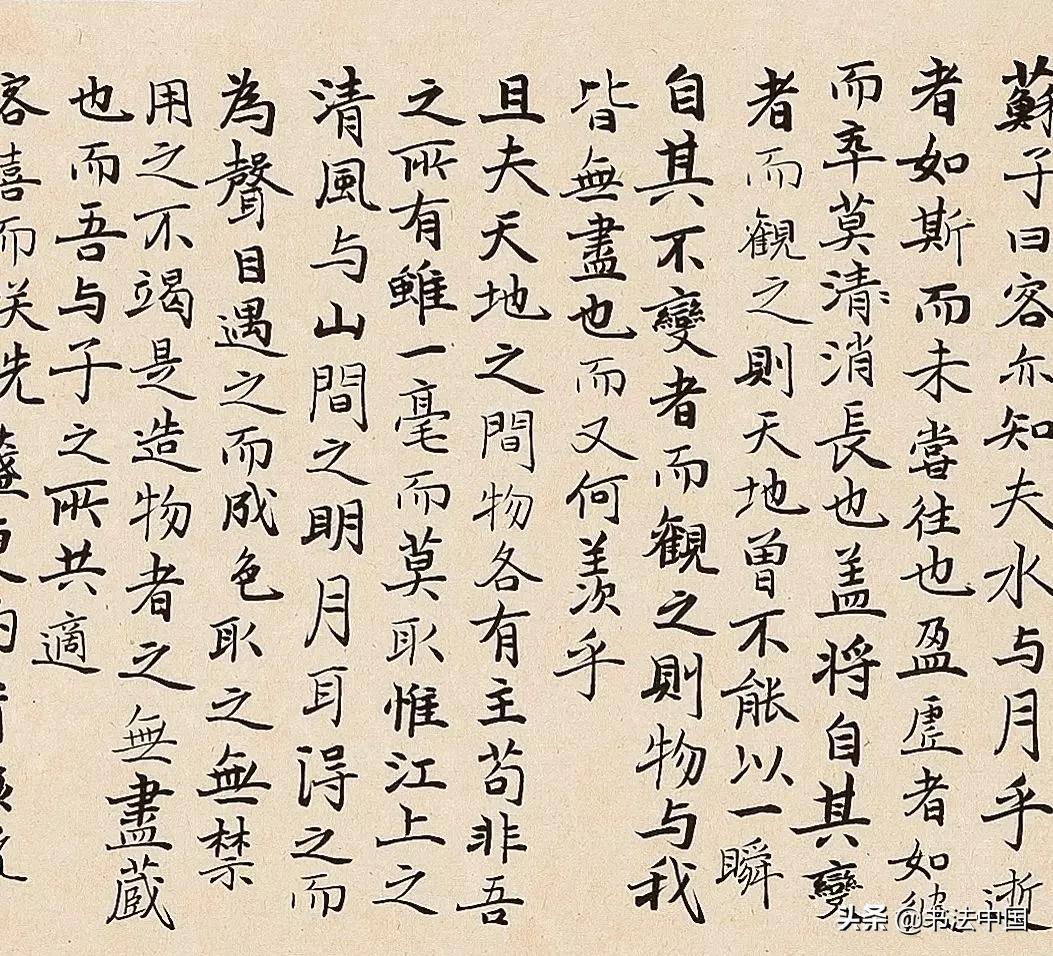 蘇子曰客亦知夫水与月乎逝
者如斯而未嘗往也盈虛者如彼
而卒莫清消長也盖将自其變
者而觀之則天地曽不能以一瞬
自其不變者而觀之則物与我
皆無盡也而又何羨乎
且夫天地之間物各有主苟非吾
之所有雖一毫而莫取惟江上之
清風与山間之明月耳得之而
為聲目遇之而成色取之無禁
用之不竭是造物者之無盡蔵
也而吾与子之所共適
客喜而笑洗盞更
头条 @书法中国